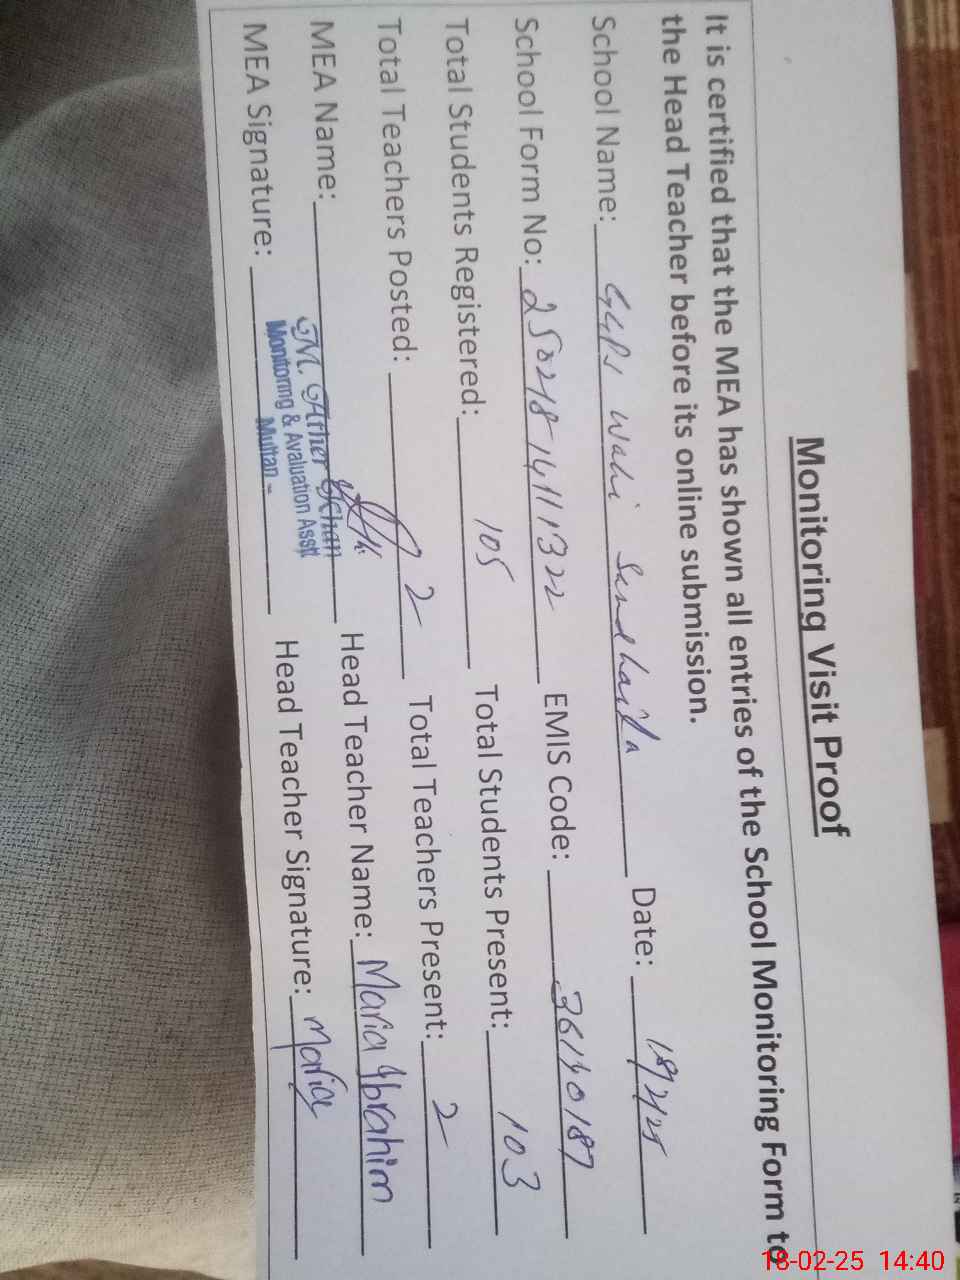 Monitoring Visit Proof
It is certified that the MEA has shown all entries of the School Monitoring Form to
the Head Teacher before its online submission.
School Name: GGPS Wahi Sandhaila Date: 18/2/25
School Form No: 250218-14111322 EMIS Code: 36140187
Total Students Registered: 105 Total Students Present: 103
Total Teachers Posted: 2 Total Teachers Present: 2
MEA Name: M. Ather Khan Head Teacher Name: Maria Ibrahim
Monitoring & Avaluation Asstt
Multan -
MEA Signature: Head Teacher Signature: Maria
18-02-25 14:40